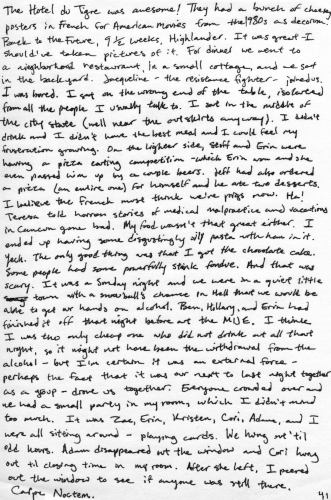 The Hotel du Tigre was awesome! They had a bunch of cheesy
posters in French for American Movies from the 1980s as decoration.
Back to the Future, 9 1/2 Weeks, Highlander. It was great. I
should've taken pictures of it. For dinner we went to
a neighborhood restaurant, in a small cottage, and we sat
in the backyard. Jacqueline - the resistance fighter - joined us.
I was bored. I sat on the wrong end of the table, isolated
from all the people I usually talk to. I sat in the middle of
the city state (well near the outskirts anyway). I didn't
drink and I didn't have the best meal and I could feel my
frustration growing. On the lighter side, Steff and Erin were
having a pizza eating competition - which Erin won and she
even passed him up by a couple beers. Jeff had also ordered
a pizza (an entire one) for himself and he ate two desserts.
I believe the French must think we're pigs now. Ha!
Teresa told horror stories of medical malpractice and vacations
in Cancun gone bad. My food wasn't that great either. I
ended up having some disgustingly oily pasta with ham in it.
Yech. The only good thing was that I got the chocolate cake.
Some people had some powerfully stink fondue. And that was
scary. It was a Sunday night and we were in a quiet little
town with a snowball's chance in Hell that we would be
able to get our hands on alcohol. Ben, Hillary, and Erin had
finished it off that night before at the MIJE, I think.
I was the only cheap one who did not drink at all that
night, so it might not have been the withdrawal from the
alcohol - but I'm certain it was an external force -
perhaps the fact that it was our next to last night together
as a group - drove us together. Everyone crowded over and
we had a small party in my room, which I didn't mind
too much. It was Zoe, Erin, Kristen, Cori, Adam, and I
were all sitting around - playing cards. We hung out 'til
odd hours. Adam disappeared out the window and Cori hung
out til closing time in my room. After she left, I peered
out the window to see if anyone was still there.
Carpe Noctem. 41